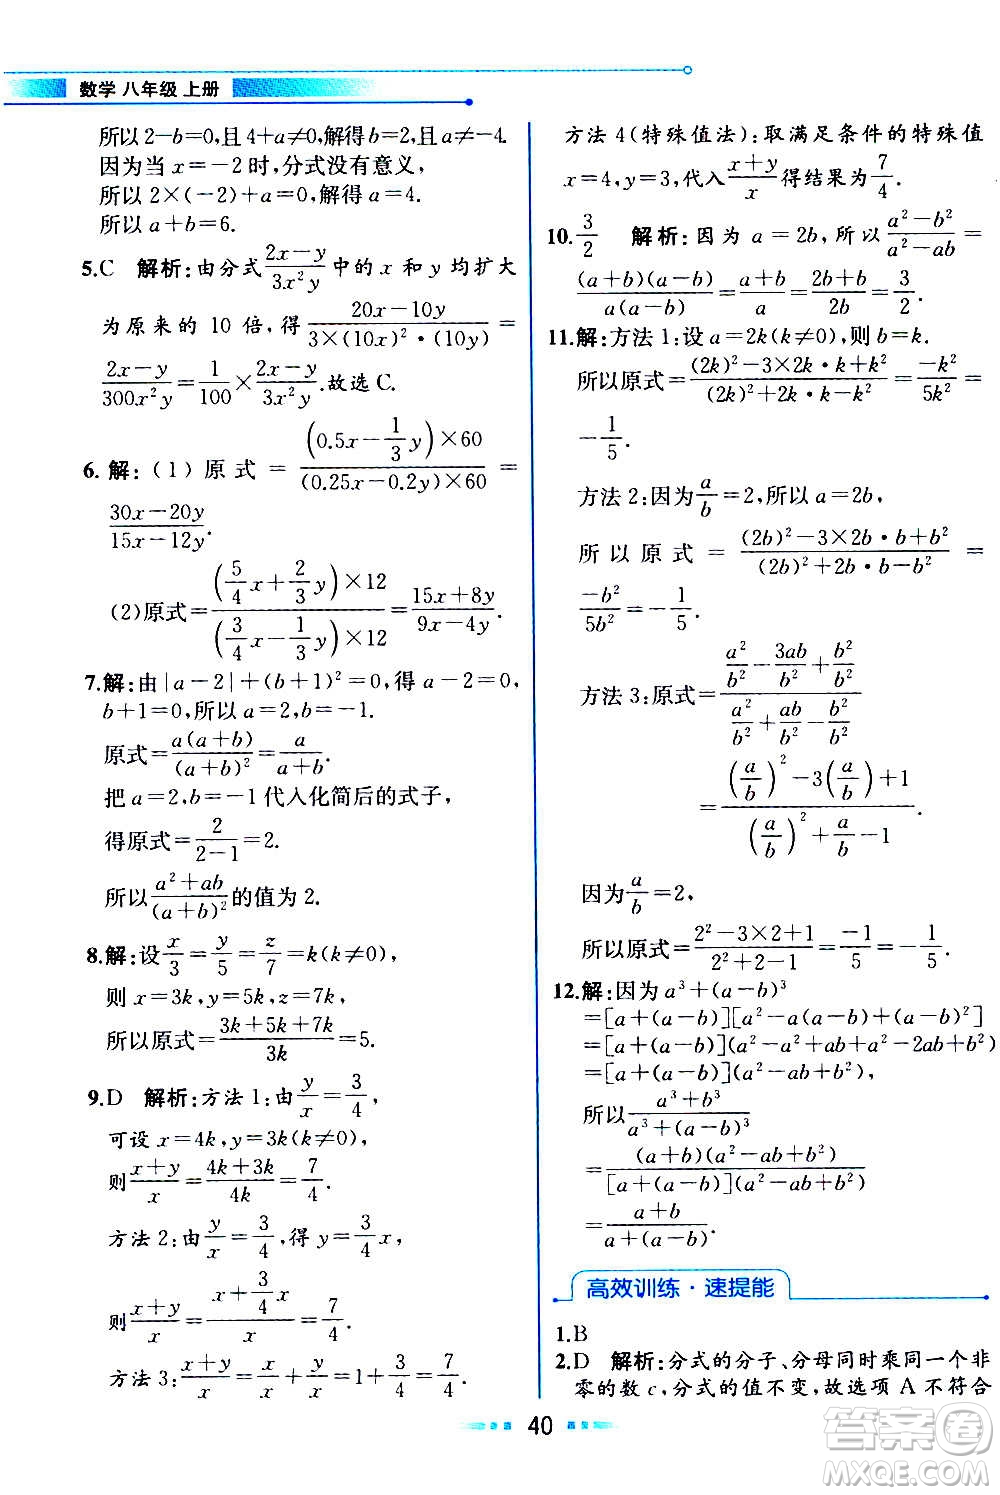 数学 八年级 上册
所以 2－b＝0,且 4＋a≠0,解得 b＝2,a≠－4.
因为当 x＝－2 时,分式没有意义,
所以 2×(－2)＋a＝0,解得 a＝4.
所以 a＋b＝6.
5.C 解析:由分式 (2x－y)/(3x²y) 中的 x 和 y 均扩大
为原来的 10 倍,得 (20x－10y)/(3×(10x)²·(10y)) ＝
(2x－y)/(300x²y) ＝ 1/100 × (2x－y)/(3x²y).故选 C.
6.解:(1)原式＝ ((0.5x－1/3y)×60)/((0.25x－0.2y)×60) ＝
(30x－20y)/(15x－12y).
(2)原式＝ ((5/4x＋2/3y)×12)/((3/4x－1/3y)×12) ＝ (15x＋8y)/(9x－4y).
7.解:由|a－2|＋(b＋1)²＝0,得 a－2＝0,
b＋1＝0,所以 a＝2,b＝－1.
原式＝ a(a＋b)/(a＋b)² ＝ a/(a＋b).
把 a＝2,b＝－1 代入化简后的式子,
得原式＝ 2/(2－1) ＝2.
所以 (a²＋ab)/(a＋b)² 的值为 2.
8.解:设 x/3＝y/5＝z/7＝k(k≠0),
则 x＝3k,y＝5k,z＝7k,
所以原式＝ (3k＋5k＋7k)/3k ＝5.
9.D 解析:方法 1:由 y/x＝3/4,
可设 x＝4k,y＝3k(k≠0),
则 (x＋y)/x ＝ (4k＋3k)/4k ＝ 7/4.
方法 2:由 y/x＝3/4,得 y＝3/4x,
则 (x＋y)/x ＝ (x＋3/4x)/x ＝ 7/4.
方法 3: (x＋y)/x ＝ x/x＋y/x ＝1＋3/4＝7/4.
方法 4(特殊值法):取满足条件的特殊值
x＝4,y＝3,代入 (x＋y)/x 得结果为 7/4.
10. 3/2 解析:因为 a＝2b,所以 (a²－b²)/(a²－ab) ＝
(a＋b)(a－b)/a(a－b) ＝ (a＋b)/a ＝ (2b＋b)/2b ＝ 3/2.
11.解:方法 1:设 a＝2k(k≠0),则 b＝k.
所以原式＝ ((2k)²－3×2k·k＋k²)/((2k)²＋2k·k－k²) ＝ －k²/5k² ＝
－1/5.
方法 2:因为 a/b＝2,所以 a＝2b,
所以原式＝ ((2b)²－3×2b·b＋b²)/((2b)²＋2b·b－b²) ＝
－b²/5b² ＝－1/5.
方法 3:原式＝ (a²/b²－3ab/b²＋b²/b²)/(a²/b²＋ab/b²－b²/b²)
＝ ((a/b)²－3(a/b)＋1)/((a/b)²＋a/b－1).
因为 a/b＝2,
所以原式＝ (2²－3×2＋1)/(2²＋2－1) ＝ －1/5 ＝－1/5.
12.解:因为 a³＋(a－b)³
＝[a＋(a－b)][a²－a(a－b)＋(a－b)²]
＝[a＋(a－b)](a²－a²＋ab＋a²－2ab＋b²)
＝[a＋(a－b)](a²－ab＋b²),
所以 (a³＋b³)/(a³＋(a－b)³)
＝ (a＋b)(a²－ab＋b²)/[a＋(a－b)](a²－ab＋b²)
＝ (a＋b)/(a＋(a－b)).
高效训练·速提能
1.B
2.D 解析:分式的分子、分母同时乘同一个非
零的数 c,分式的值不变,故选项 A 不符合
40
答案圈
MXQE.COM